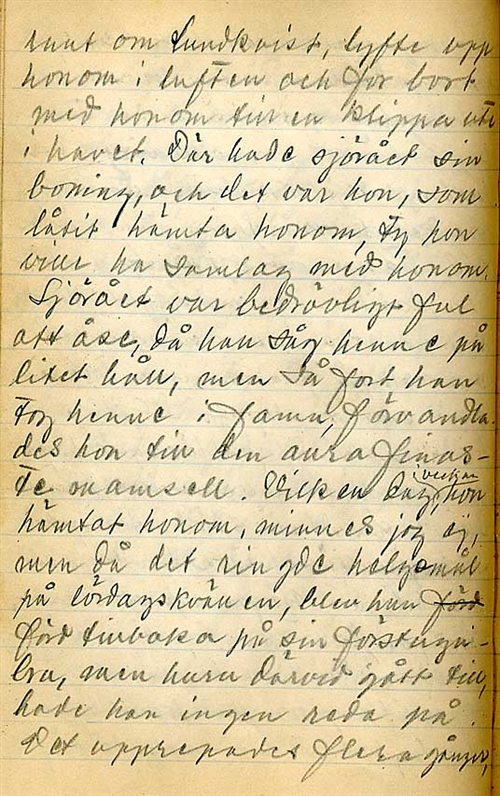 runt om Lundkvist, lyfte upp
honom i luften och for bort
med honom till en klippa ute
i havet. Där hade sjörået sin
boning, och det var hon, som
låtit hämta honom, ty hon
ville ha samlag med honom.
Sjörået var bedrövligt ful
att åse, då han såg henne på
litet håll, men så fort han
tog henne i famn, förvandla-
des hon till den allra finas-
te mamsell. Vilken dag i veckan hon
hämtat honom, minnes jag ej,
men då det ringde helgsmål
på lördagskvällen, blev han förd
förd tillbaka på sin förstugu-
bro, men huru därvid gått till,
hade han ingen reda på.
Det upprepades flera gånger,